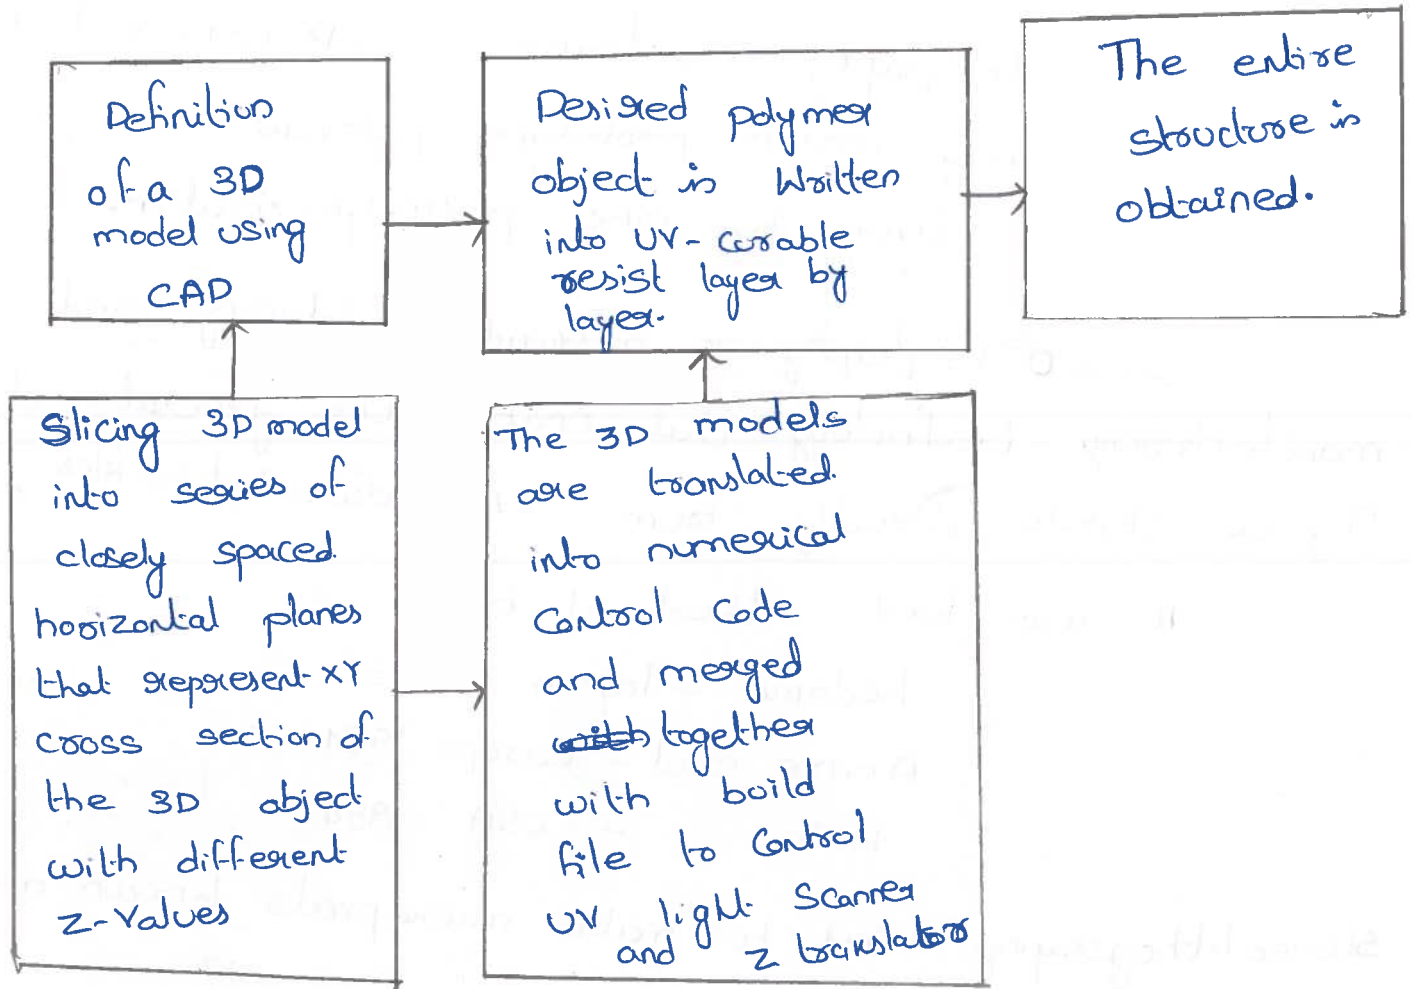 Definition
of a 3D
model using
CAD
Desired polymer
object is Written
into UV- curable
resist layer by
layer.
The entire
structure is
obtained.
Slicing 3D model
into series of
closely spaced
horizontal planes
that represent XY
cross section of
the 3D object
with different
Z-Values
The 3D models
are translated
into numerical
Control Code
and merged
together
with build
file to Control
UV light Scanner
and Z translator